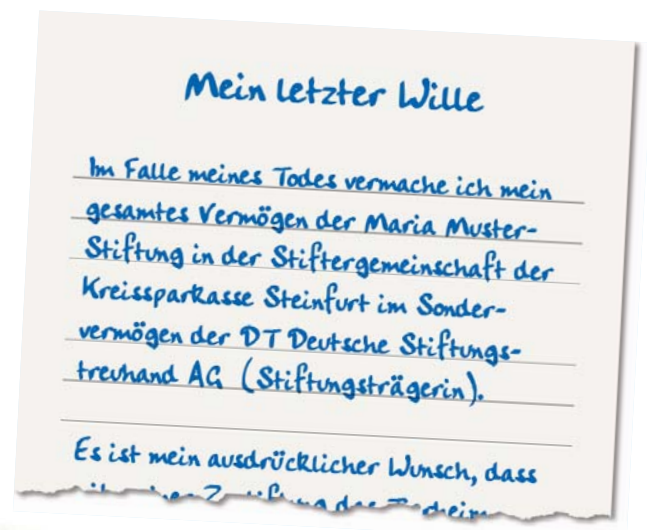 Mein letzter Wille
Im Falle meines Todes vermache ich mein
gesamtes Vermögen der Maria Muster-
Stiftung in der Stiftergemeinschaft der
Kreissparkasse Steinfurt im Sonder-
vermögen der DT Deutsche Stiftungs-
treuhand AG (Stiftungsträgerin).
Es ist mein ausdrücklicher Wunsch, dass